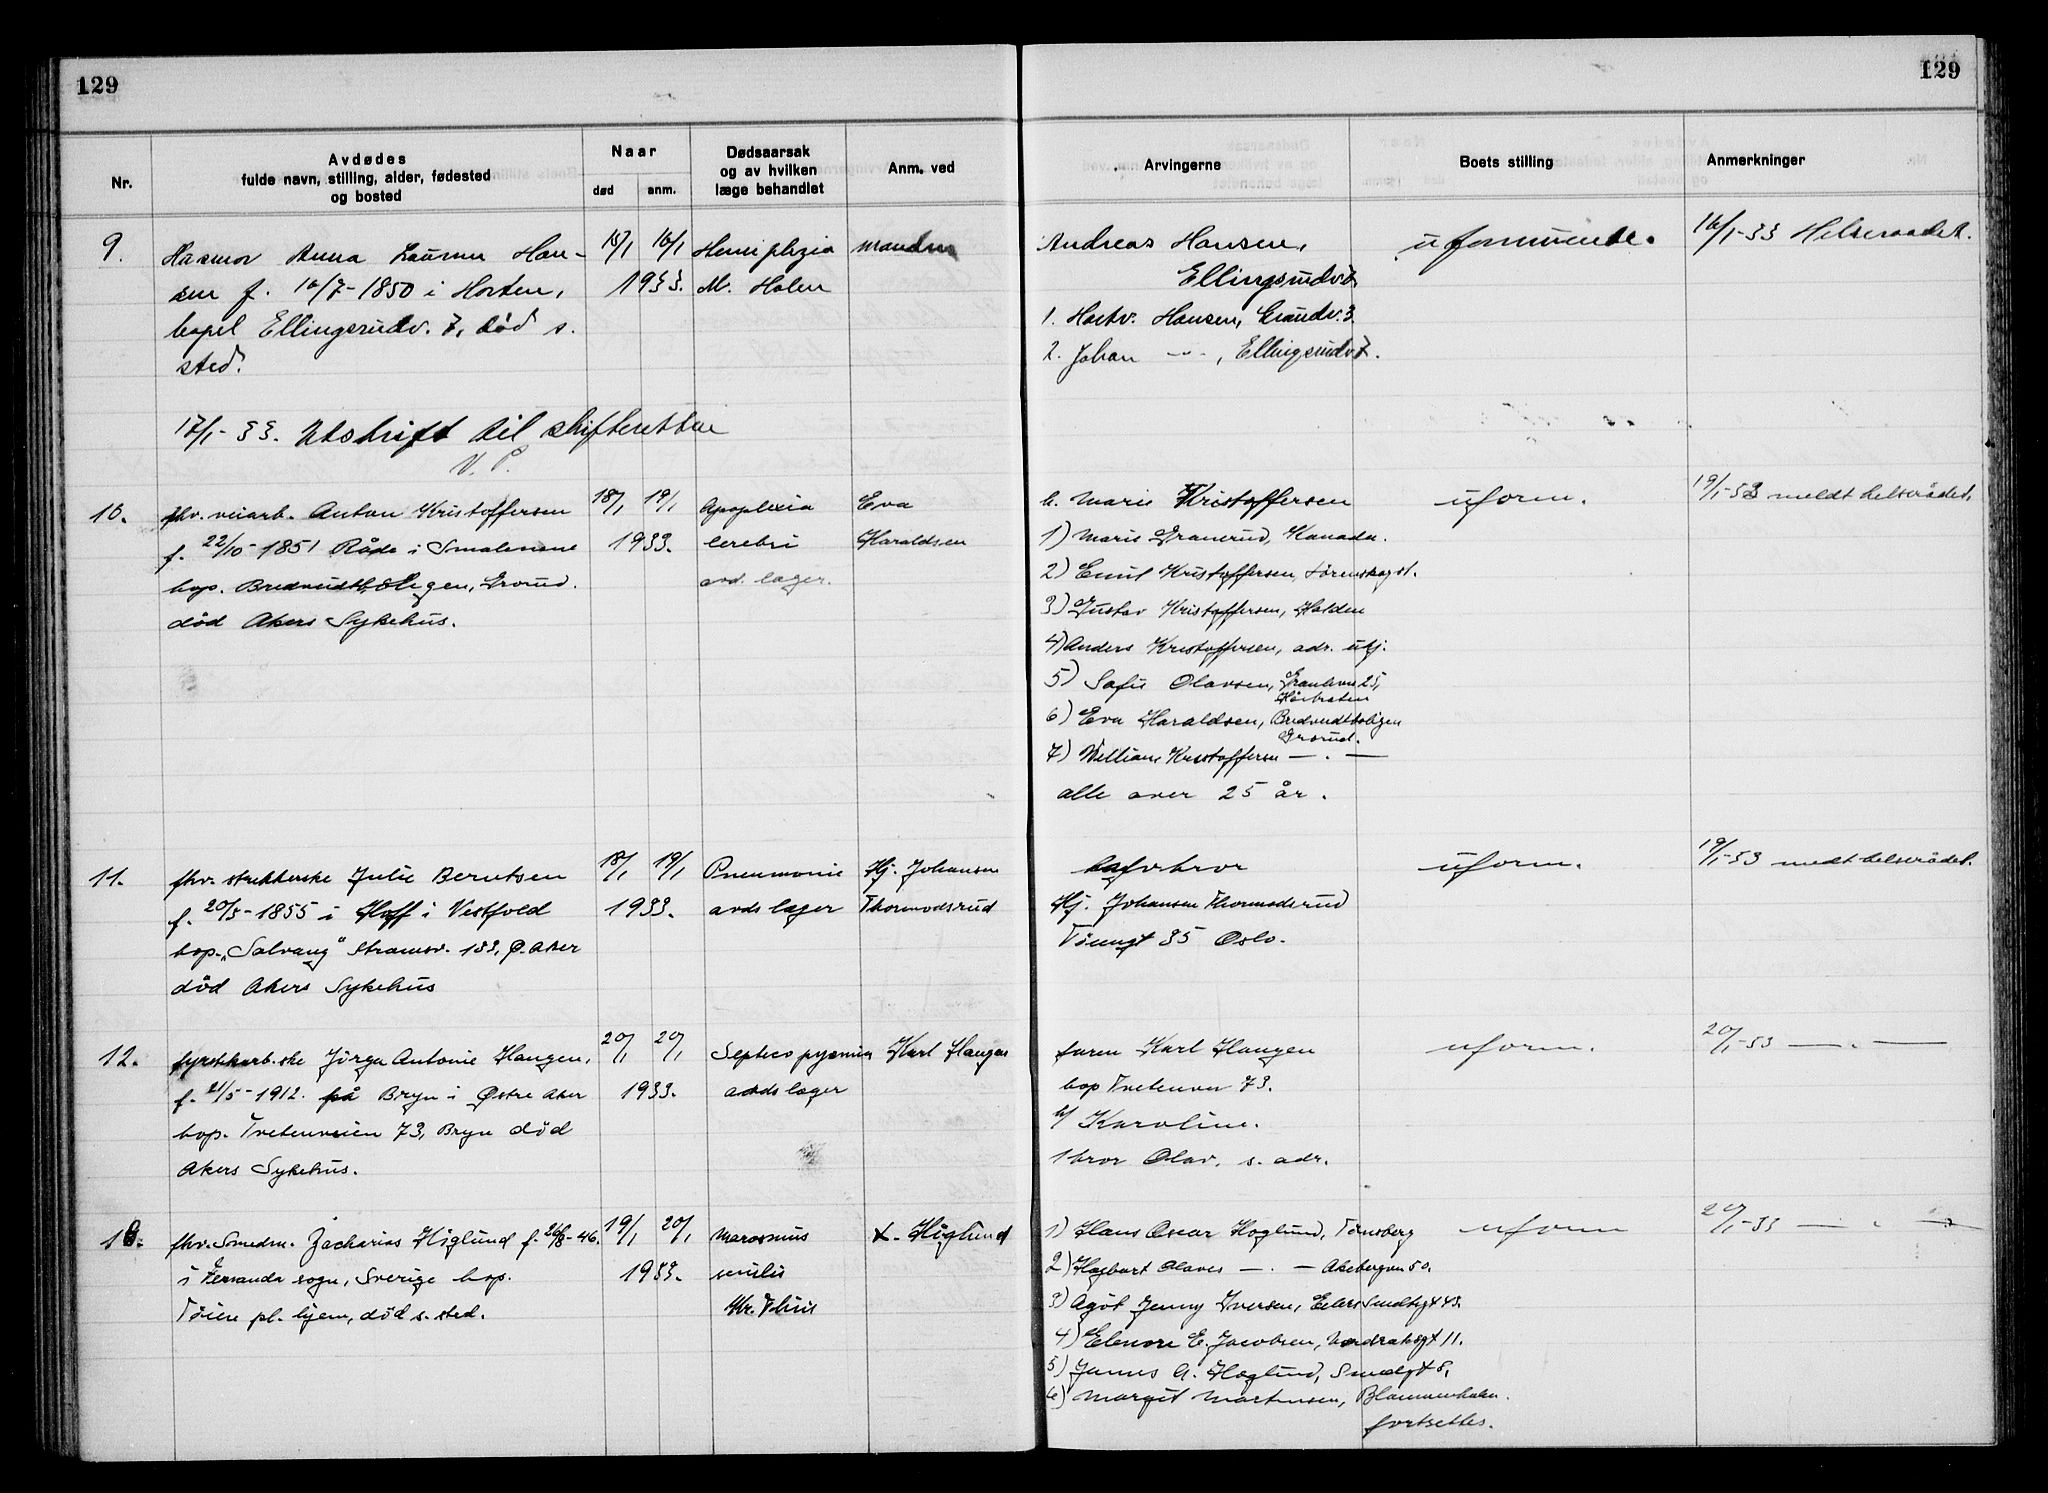 129
129
Nr.
Avdødes
fulde navn, stilling, alder, fødested
og bosted
Naar
død
anm.
Dødsaarsak
og av hvilken
læge behandlet
Anm. ved
Arvingerne
Boets stilling
Anmerkninger
9.
Husmor Anna Laurine Han-
sen f. 16/7-1850 i Horten,
bopel Ellingsrudv. 7, død s.
sted.
15/1 16/1
1933.
Hemiplegia
M. Holen
manden
Andreas Hansen,
Ellingsrudv. 7
1. Hartv. Hansen, 3.
2. Johan -"-, Ellingsrudv 7.
uformuende.
16/1-33 Helseraadet.
17/1-33. Utskrift til skifteretten
V. P.
10.
fhv. veiarb. Anton Kristoffersen
f. 22/10-1851 Råde i Smalenene
bop. Bredvedtboligen, Grorud.
død Akers Sykehus.
18/1 19/1
1933.
Apoplexia
cerebri
avd. læger.
Eva
Haraldsen
h. Marie Kristoffersen
1) Marie Granerud, Kanada.
2) Emil Kristoffersen, Lørenskog st.
3) Gustav Kristoffersen, Halden
4) Anders Kristoffersen, adr. ukj.
5) Sofie Olavsen, 25,
6) Eva Haraldsen, Bredvedtboligen
Grorud.
7) William Kristoffersen — . —
alle over 25 år.
uform.
19/1-33 meldt helserådet.
11.
fhv. strikkerske Julie Berntsen
f. 20/5-1855 i Hoff i Vestfold
bop. "Solvang" Strømsv. 183, Ø. Aker
død Akers Sykehus
18/1 19/1
1933.
Pneumonie
avds læger
Hj. Johansen
Thormodsrud
Hj. Johansen Thormodsrud
35 Oslo.
uform.
19/1-33 meldt helserådet.
12.
fyrstikarb.ske Jørga Antonie Haugen,
f. 21/5-1912. på Bryn i Østre Aker
bop. Tvetenveien 73, Bryn død
Akers Sykehus.
20/1 20/1
1933.
Septico pyæmia
avds læger
Karl Haugen
faren Karl Haugen
bop Tvetenvn 73.
h/ Karoline.
1 bror Olav, s. adr.
uform.
20/1-33 — . —
13.
fhv. Smedm. Zacharias Høglund f. 26/8-46.
i sogn, Sverige bop.
Tøien pl. hjem, død s. sted.
19/1 20/1
1933.
Marasmus
senilis
Kr. Thue
Høglund
1) Hans Oscar Høglund, Tønsberg
2) Hagbart Olaves — . — Akebergvn 50.
3) Agot Jenny Iversen, Eilert Sundtsgt 43.
4) Elenore E. Jacobsen, 11.
5) A. Høglund, Smedgt 8,
6) Margit Martinsen, Blommenholm.
fortsettes.
uform
20/1-33 — " —